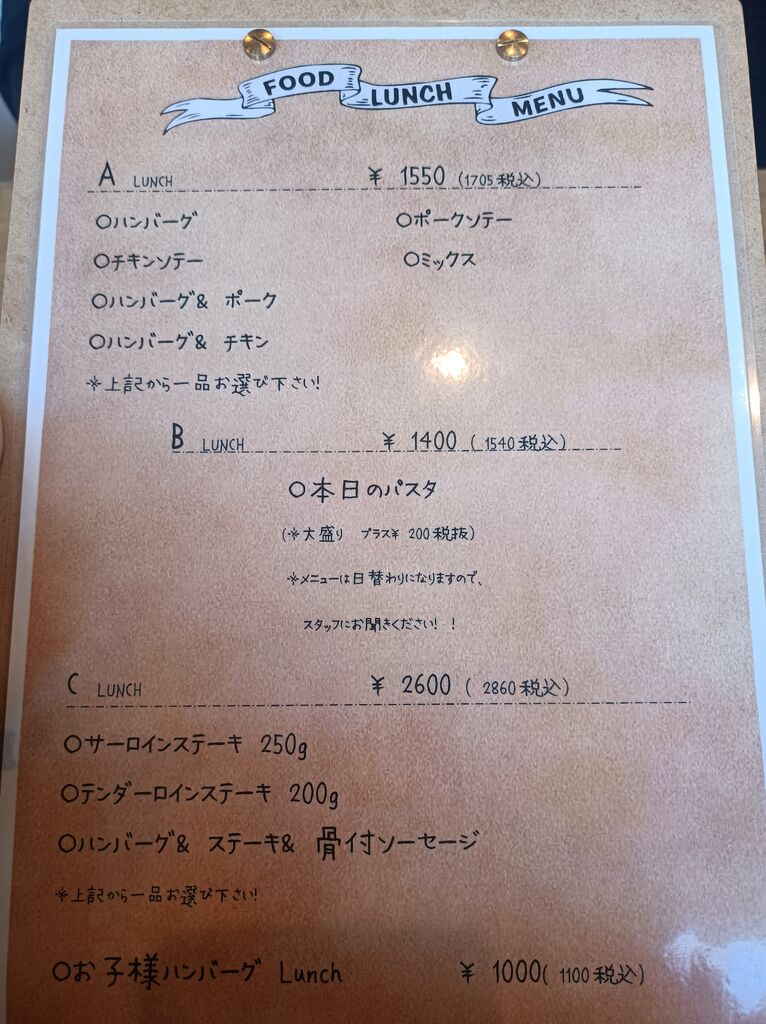 FOOD LUNCH MENU
A LUNCH ¥ 1550 (1705 税込)
○ハンバーグ ○ポークソテー
○チキンソテー ○ミックス
○ハンバーグ& ポーク
○ハンバーグ& チキン
※上記から一品お選び下さい!
B LUNCH ¥ 1400 ( 1540 税込)
○本日のパスタ
(※大盛り プラス¥ 200 税抜)
※メニューは日替わりになりますので、
スタッフにお聞きください! !
C LUNCH ¥ 2600 ( 2860 税込)
○サーロインステーキ 250g
○テンダーロインステーキ 200g
○ハンバーグ& ステーキ& 骨付ソーセージ
※上記から一品お選び下さい!
○お子様ハンバーグ Lunch ¥ 1000( 1100 税込)